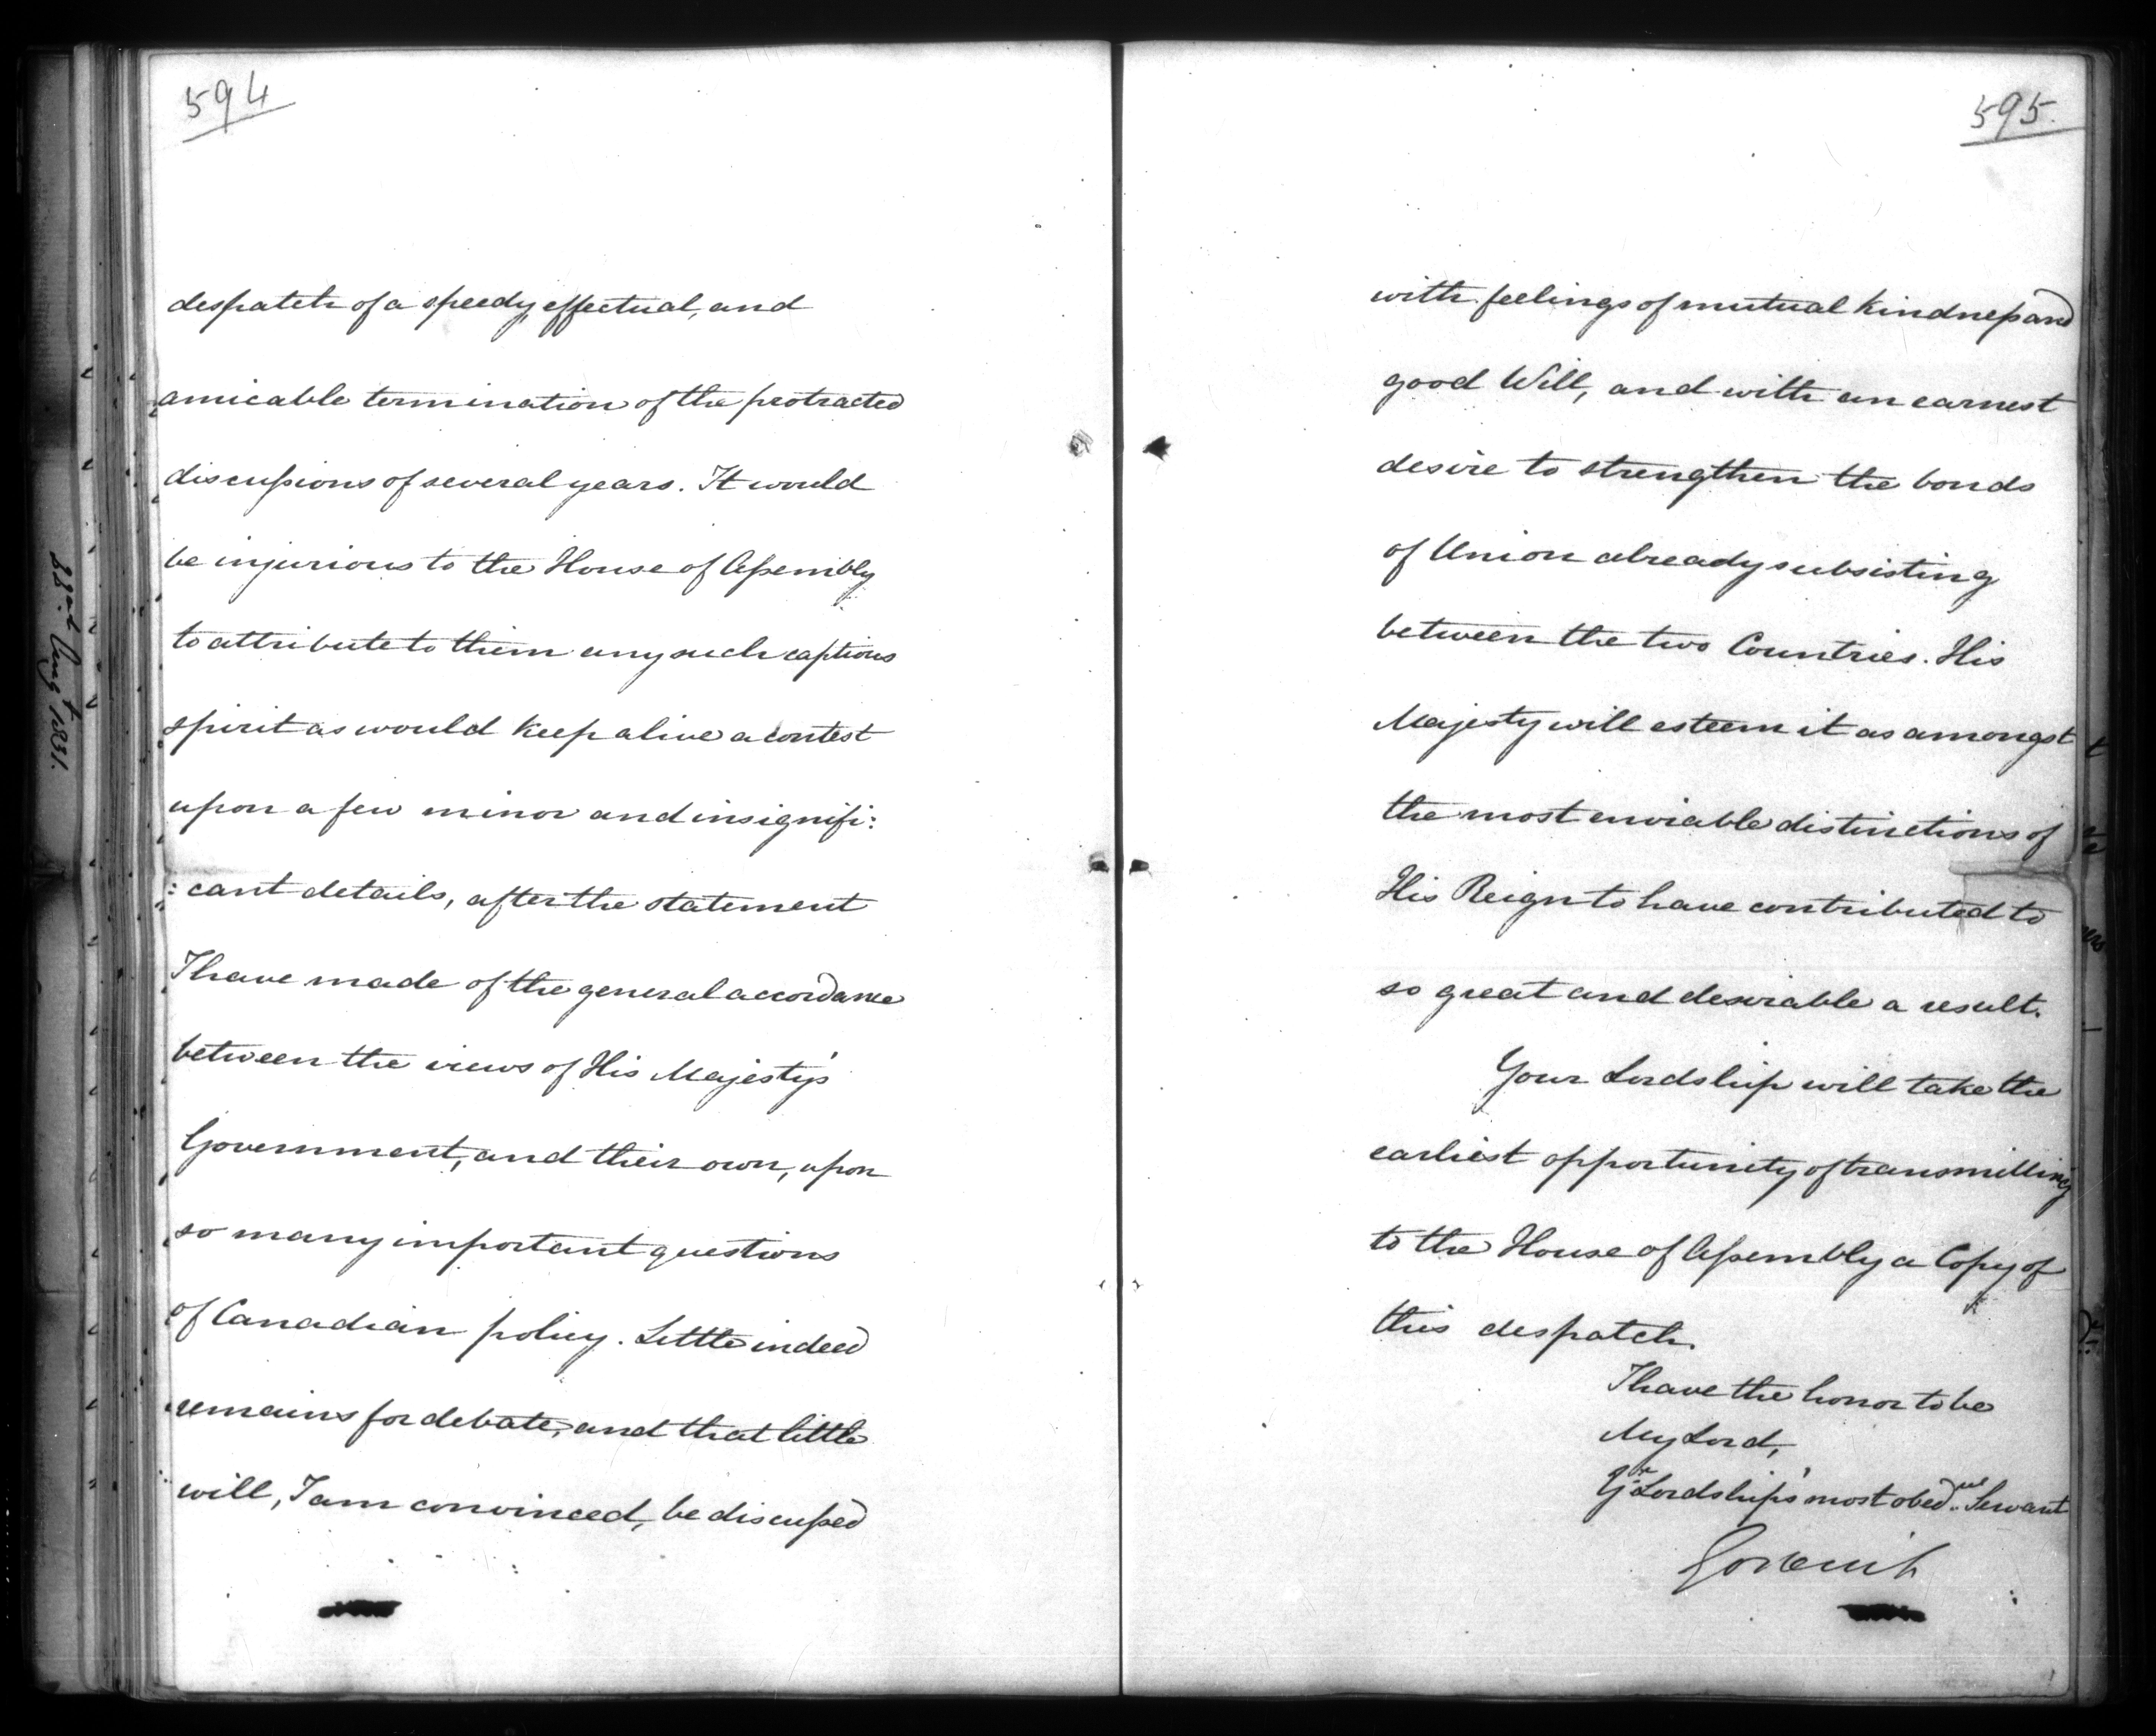 594
despatch of a speedy, effectual, and
amicable termination of the protracted
discussions of several years. It would
be injurious to the House of Assembly
to attribute to them any such captious
spirit as would keep alive a contest
upon a few minor and insignifi:
:cant details, after the statement
I have made of the general accordance
between the views of His Majesty's
Government, and their own, upon
so many important questions
of Canadian policy. Little indeed
remains for debate, and that little
will, I am convinced, be discussed
595.
with feelings of mutual kindness and
good Will, and with an earnest
desire to strengthen the bonds
of Union already subsisting
between the two Countries. His
Majesty will esteem it as amongst
the most enviable distinctions of
His Reign to have contributed to
so great and desirable a result.
Your Lordship will take the
earliest opportunity of transmitting
to the House of Assembly a Copy of
this despatch.
I have the honor to be
My Lord,
Yr Lordship's most obed Servant
Goderich
Augt 1831.